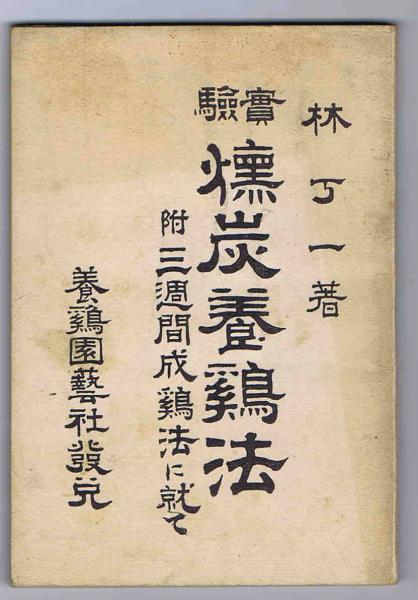 林丁一著
實驗
燻炭養鷄法
附 三週間成鷄法に就て
養鷄園藝社發兌